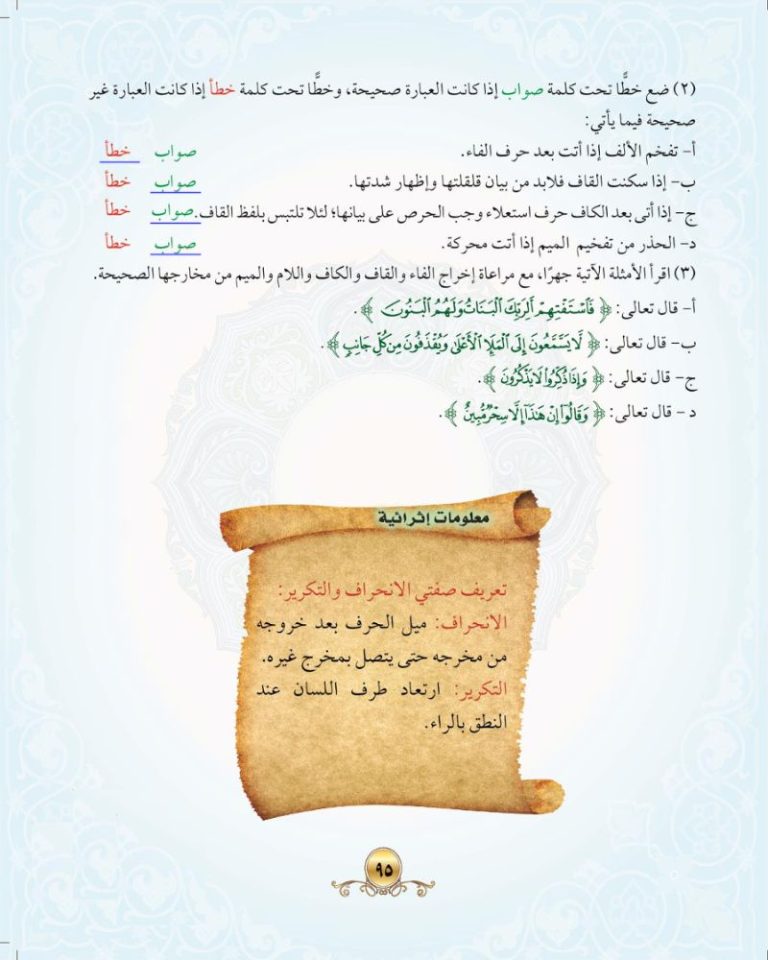 (٢) ضع خطًّا تحت كلمة صواب إذا كانت العبارة صحيحة، وخطًّا تحت كلمة خطأ إذا كانت العبارة غير
صحيحة فيما يأتي:
أ- تفخم الألف إذا أتت بعد حرف الفاء. صواب خطأ
ب- إذا سكنت القاف فلابد من بيان قلقلتها وإظهار شدتها. صواب خطأ
ج- إذا أتى بعد الكاف حرف استعلاء وجب الحرص على بيانها؛ لئلا تلتبس بلفظ القاف. صواب خطأ
د- الحذر من تفخيم الميم إذا أتت محركة. صواب خطأ
(٣) اقرأ الأمثلة الآتية جهرًا، مع مراعاة إخراج الفاء والقاف والكاف واللام والميم من مخارجها الصحيحة.
أ- قال تعالى: ﴿ فَٱسۡتَفۡتِهِمۡ أَلِرَبِّكَ ٱلۡبَنَاتُ وَلَهُمُ ٱلۡبَنُونَ ﴾.
ب- قال تعالى: ﴿ لَّا يَسَّمَّعُونَ إِلَى ٱلۡمَلَإِ ٱلۡأَعۡلَىٰ وَيُقۡذَفُونَ مِن كُلِّ جَانِبٖ ﴾.
ج- قال تعالى: ﴿ وَإِذَا ذُكِّرُواْ لَا يَذۡكُرُونَ ﴾.
د- قال تعالى: ﴿ وَقَالُوٓاْ إِنۡ هَٰذَآ إِلَّا سِحۡرٞ مُّبِينٌ ﴾.
معلومات إثرائية
تعريف صفتي الانحراف والتكرير:
الانحراف: ميل الحرف بعد خروجه
من مخرجه حتى يتصل بمخرج غيره.
التكرير: ارتعاد طرف اللسان عند
النطق بالراء.
٩٥